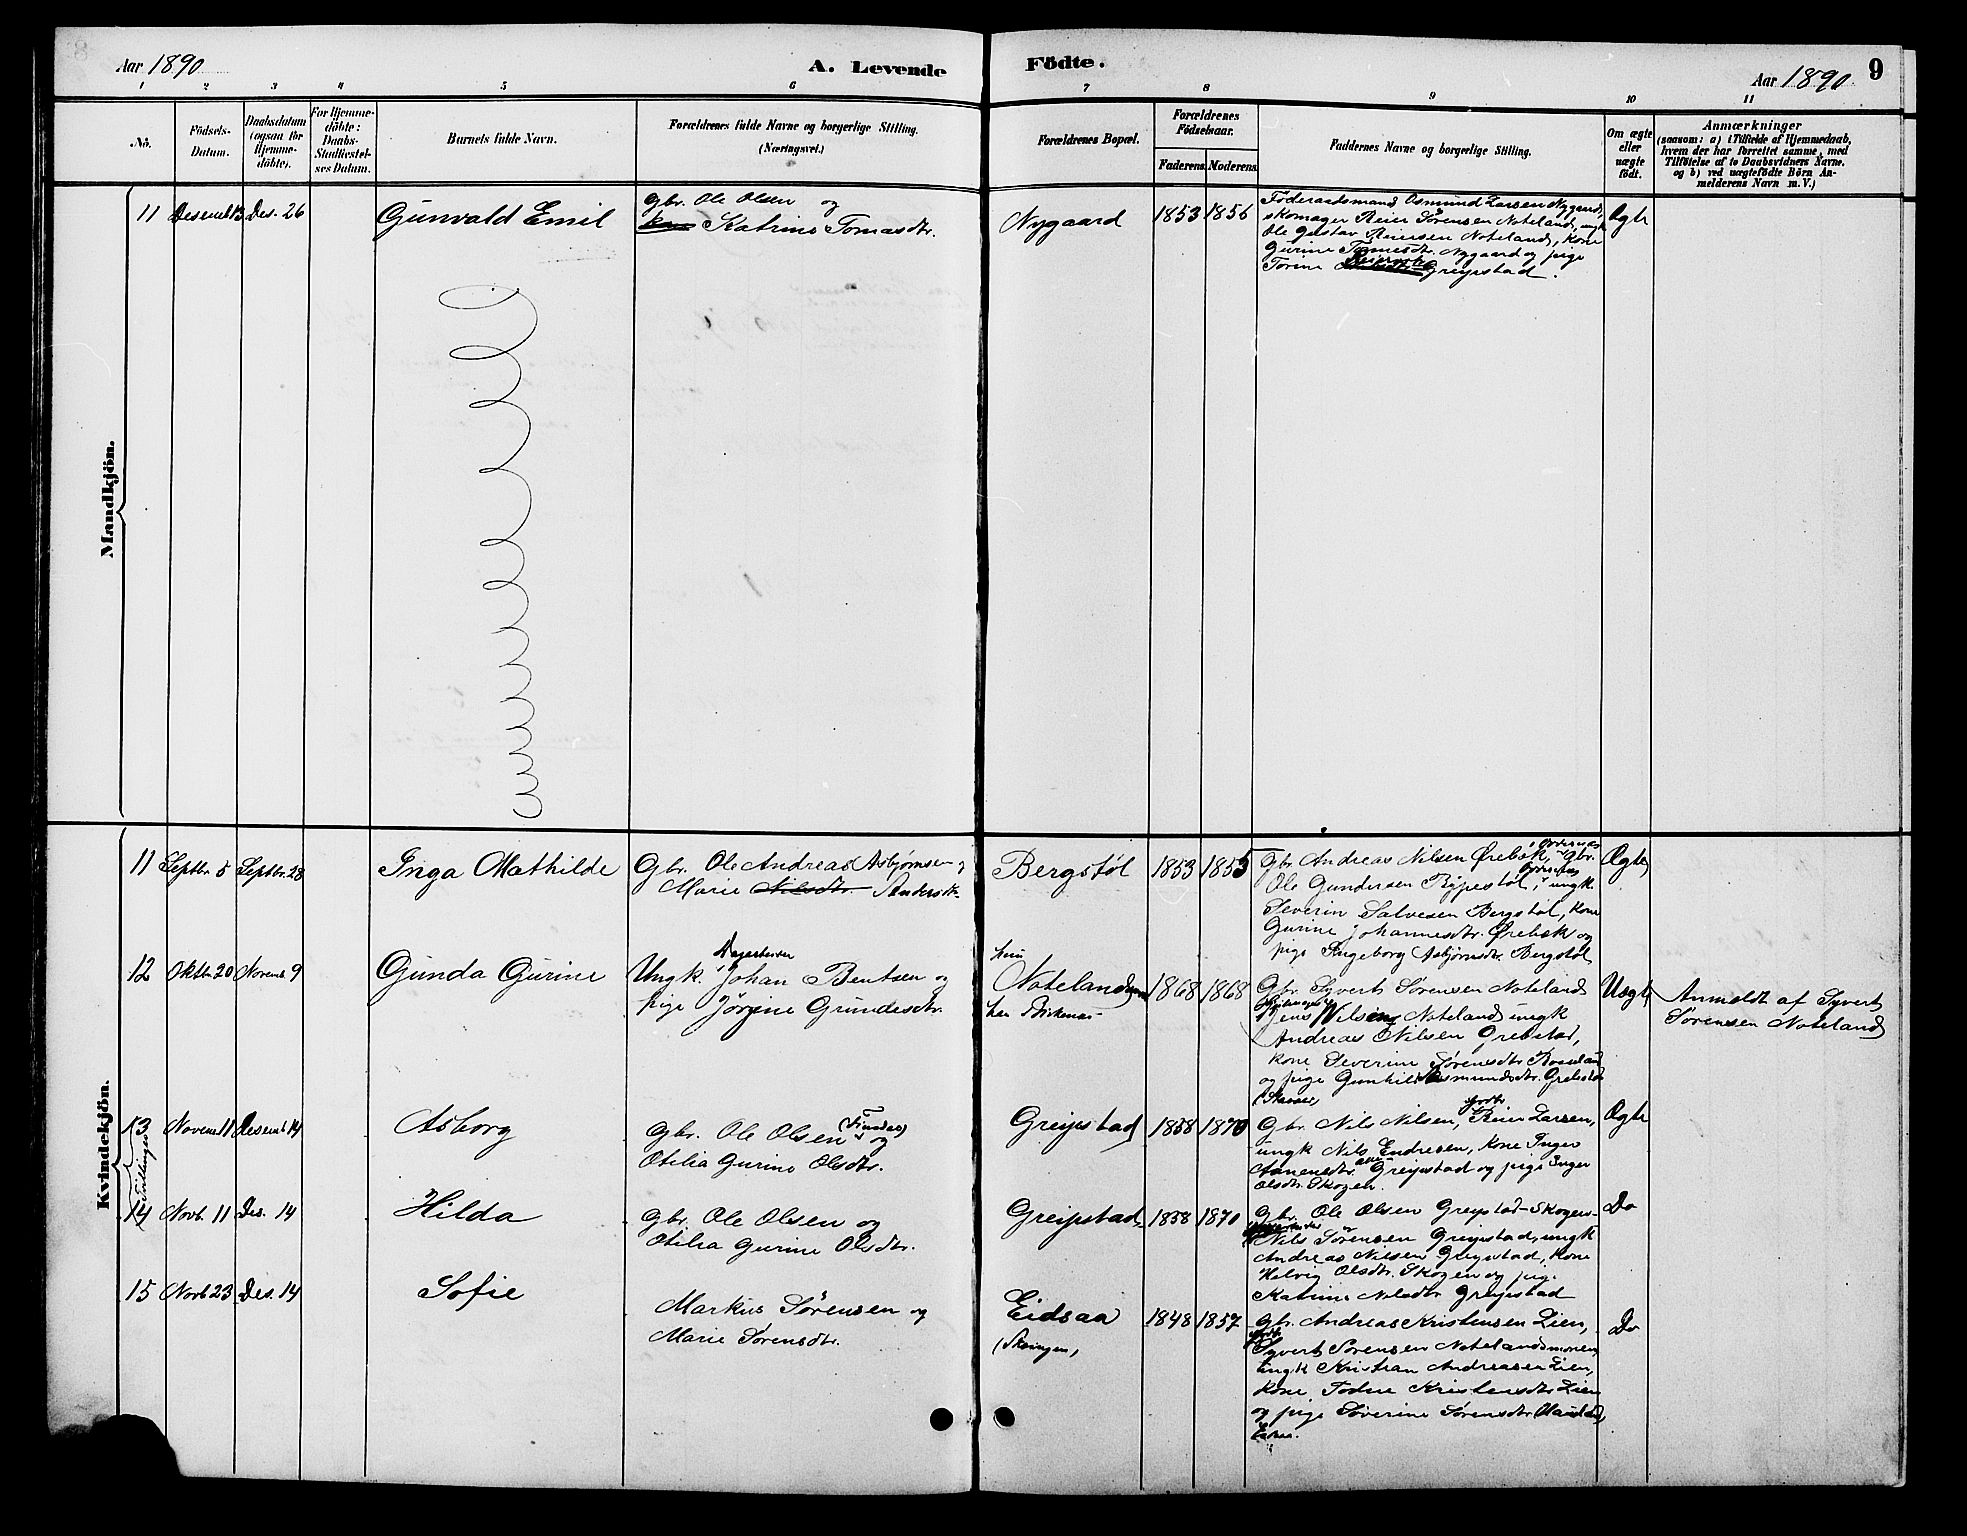 Aar 1890
A. Levende
Födte.
Aar 1890
9
1 2 3 4 5 6 7 8 9 10 11
No.
Födsels-
Datum.
Daabsdatum
(ogsaa for
Hjemme-
döbte).
For Hjemme-
döbte:
Daabs-
Stadfæstel-
ses Datum.
Barnets fulde Navn.
Forældrenes fulde Navne og borgerlige Stilling.
(Næringsvei.)
Forældrenes Bopæl.
Forældrenes
Födselsaar.
Faderens.
Moderens.
Faddernes Navne og borgerlige Stilling.
Om ægte
eller
uægte
födt.
Anmærkninger
(saasom: a) i Tilfælde af Hjemmedaab,
hvem der har forrettet samme, med
Tilföielse af to Daabsvidners Navne,
og b) ved uægtefödte Börn An-
melderens Navn m. V.)
Mandkjön.
11
Desemb 13
Des. 26
Gunvald Emil
Gbr. Ole Olsen og
Katrine Tomasdtr.
Nygaard
1853
1856
Föderaadsmand Osmund Larsen Nygaard,
skomager Reier Sørensen Noteland, ungk
Ole Gustav Reiersen Noteland, kone
Gurine Tomesdtr. Nygaard og pige
Torine Reiersdtr. Greipstad.
Ægte
Kvindekjön.
11
Septbr. 5
Septbr. 28
Inga Mathilde
Gbr. Ole Andreas Asbjørnsen og
Marie Nilsdtr. Andersdtr.
Bergstøl
1853
1855
Gbr. Andreas Nilsen Ørebæk, gbr.
Ole Gundersen Rypestøl, ungk
Severin Salvesen Bergstøl, kone
Gurine Johannesdtr. Ørebæk og
pige Ingeborg Asbjørnsdtr. Bergstøl
Ægte
12
Oktbr 20
Novemb 9
Gunda Gurine
Ungk. Johan Bentsen og
pige Jörgine Grundesdtr.
hun
Noteland
han Birkenes
1868
1868
Gbr. Syvert Sørensen Noteland
Jens Nilsen Noteland ungk
Andreas Nilsen Grebstad,
kone Severine Sørensdtr Rosseland
og pige Gunhild Asmundsdtr. Grebstad
Uægte
Anmeldt af Syvert
Sørensen Noteland
Tvillinger
13
Novemb 11
Desemb 14
Asborg
Gbr. Ole Olsen og
Otilia Gurine Olsdtr.
Greipstad
1858
1870
Gbr. Nils Nilsen, Reier Larsen,
ungk Nils Endresen, kone Inger
Aanensdtr. alle Greipstad og pige Inger
Olsdtr. Skogen.
Ægte
14
Novb. 11
Des. 14
Hilda
Gbr. Ole Olsen og
Otilia Gurine Olsdtr.
Greipstad
1858
1870
Gbr. Ole Olsen Greipstad-Skogen
Nils Sörensen Greipstad, ungk
Andreas Nilsen Greipstad, kone
Helvig Olsdtr. Skogen og pige
Katrine Nilsdtr Greipstad
Do
15
Novb 23
Des. 14
Sofie
Markus Sörensen og
Marie Sørensdtr.
Eidsaa
1848
1857
Gbr. Andreas Kristensen Lien,
Syvert Sørensen Notelandsmoen,
ungk Kristian Andreasen Lien,
kone Todne Kristensdtr Lien
og pige Severine Sørensdtr
Do